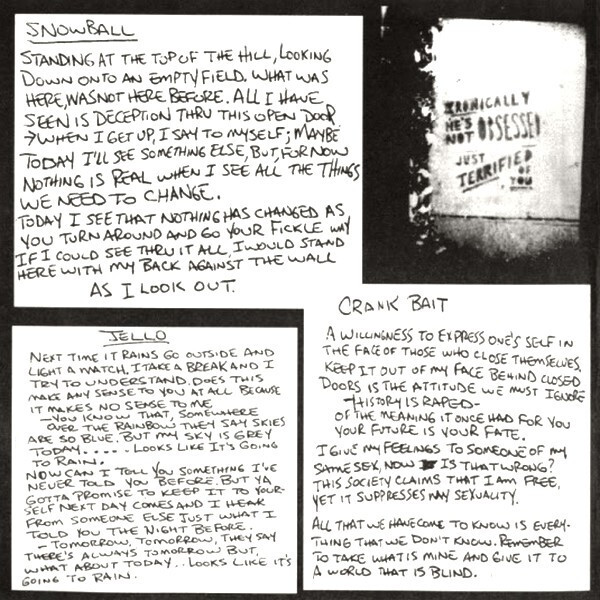 SNOWBALL
STANDING AT THE TOP OF THE HILL, LOOKING
DOWN ONTO AN EMPTY FIELD. WHAT WAS
HERE, WAS NOT HERE BEFORE. ALL I HAVE
SEEN IS DECEPTION THRU THIS OPEN DOOR.
→WHEN I GET UP, I SAY TO MYSELF; MAYBE
TODAY I'LL SEE SOMETHING ELSE, BUT, FOR NOW
NOTHING IS REAL WHEN I SEE ALL THE THINGS
WE NEED TO CHANGE.
TODAY I SEE THAT NOTHING HAS CHANGED AS
YOU TURN AROUND AND GO YOUR FICKLE WAY
IF I COULD SEE THRU IT ALL, I WOULD STAND
HERE WITH MY BACK AGAINST THE WALL
AS I LOOK OUT.
IRONICALLY
HE'S
NOT OBSESSED
JUST
TERRIFIED
OF
YOU
JELLO
NEXT TIME IT RAINS GO OUTSIDE AND
LIGHT A MATCH. I TAKE A BREAK AND I
TRY TO UNDERSTAND. DOES THIS
MAKE ANY SENSE TO YOU AT ALL BECAUSE
IT MAKES NO SENSE TO ME
—YOU KNOW THAT, SOMEWHERE
OVER THE RAINBOW THEY SAY SKIES
ARE SO BLUE. BUT MY SKY IS GREY
TODAY..... LOOKS LIKE IT'S GOING
TO RAIN.
NOW CAN I TELL YOU SOMETHING I'VE
NEVER TOLD YOU BEFORE. BUT YA
GOTTA PROMISE TO KEEP IT TO YOUR-
SELF NEXT DAY COMES AND I HEAR
FROM SOMEONE ELSE JUST WHAT I
TOLD YOU THE NIGHT BEFORE.
- TOMORROW, TOMORROW, THEY SAY
THERE'S ALWAYS TOMORROW BUT,
WHAT ABOUT TODAY.. LOOKS LIKE IT'S
GOING TO RAIN.
CRANK BAIT
A WILLINGNESS TO EXPRESS ONE'S SELF IN
THE FACE OF THOSE WHO CLOSE THEMSELVES.
KEEP IT OUT OF MY FACE BEHIND CLOSED
DOORS IS THE ATTITUDE WE MUST IGNORE
—HISTORY IS RAPED—
OF THE MEANING IT ONCE HAD FOR YOU
YOUR FUTURE IS YOUR FATE.
I GIVE MY FEELINGS TO SOMEONE OF MY
SAME SEX, NOW IS THAT WRONG?
THIS SOCIETY CLAIMS THAT I AM FREE,
YET IT SUPPRESSES MY SEXUALITY.
ALL THAT WE HAVE COME TO KNOW IS EVERY-
THING THAT WE DON'T KNOW. REMEMBER
TO TAKE WHAT IS MINE AND GIVE IT TO
A WORLD THAT IS BLIND.